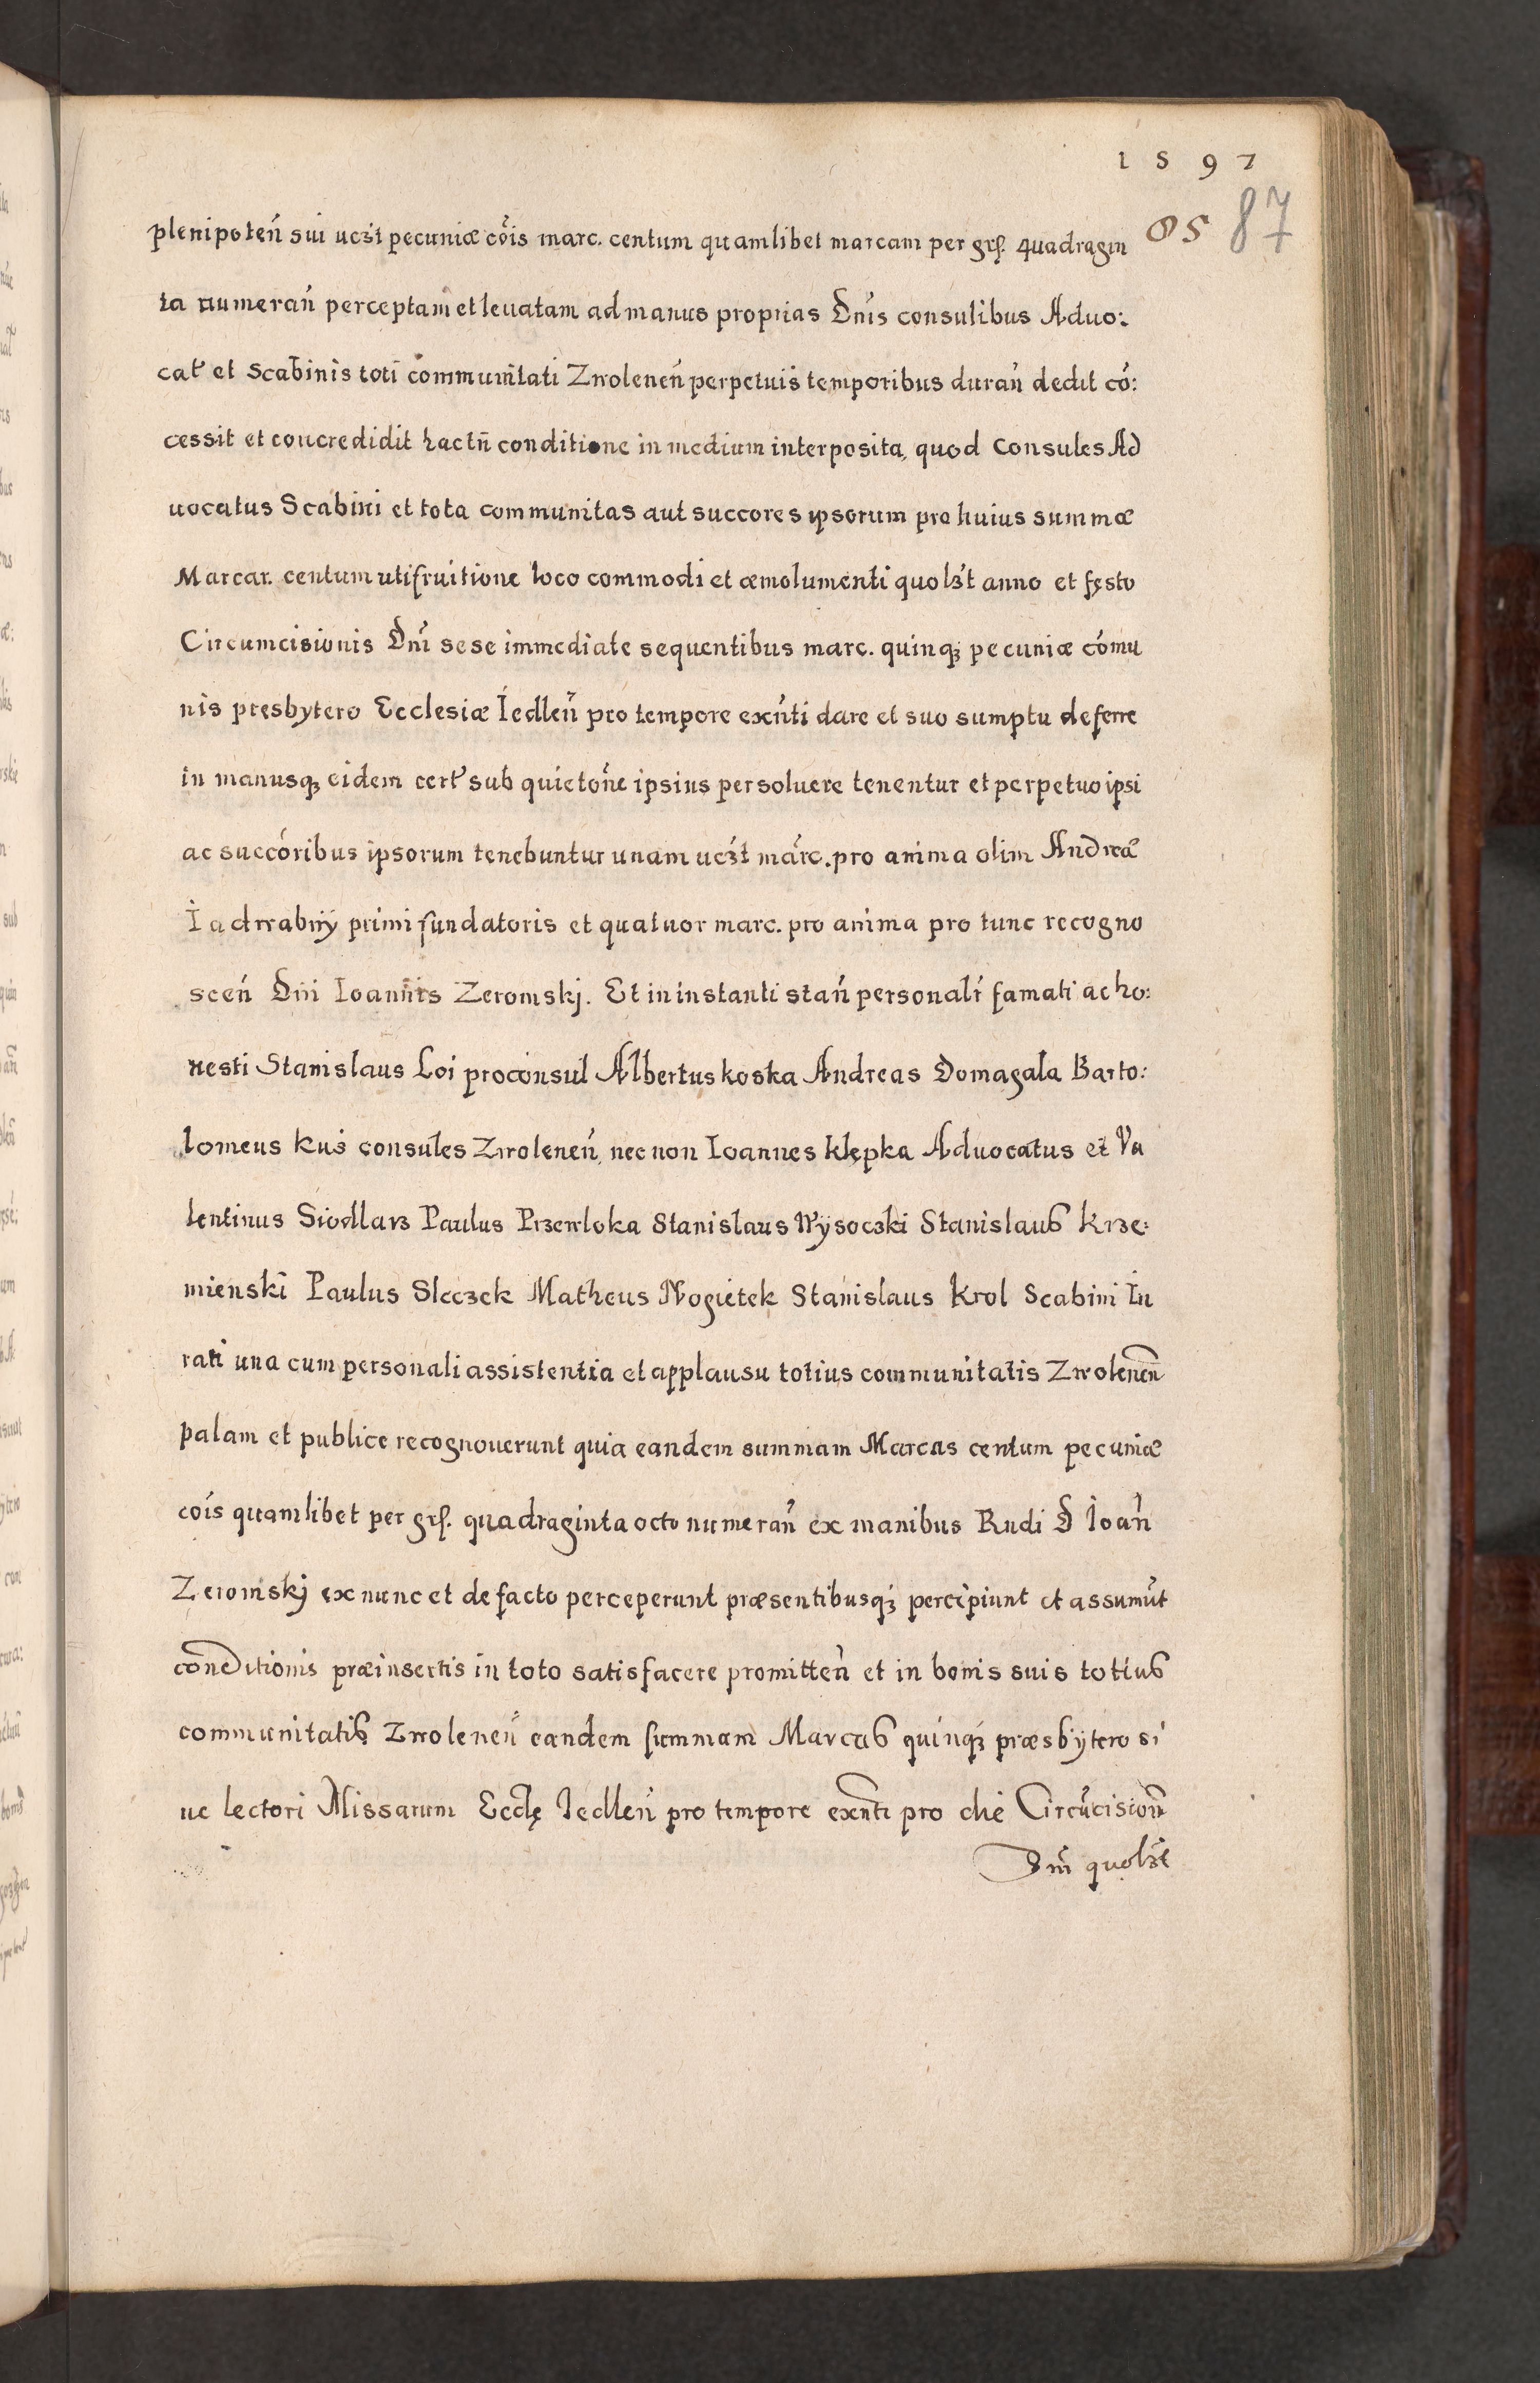 1597
85 87
plenipoteñ sui uczt pecuniæ cõis marc. centum quamlibet marcam per grſ. quadragin
ta numerañ perceptam et leuatam ad manus proprias Dñis consulibus Aduo:
cat̃ et scabinis toti communitati Zwoleneñ perpetuis temporibus durañ dedit cõ:
cessit et concredidit hac tñ conditione in medium interposita, quod Consules Ad
uocatus Scabini et tota communitas aut succores ipsorum pro huius summæ
Marcar. centum utifruitione loco commodi et æmolumenti quolzt anno et festo
Circumcisionis Dñi sese immediate sequentibus marc. quinqꝫ pecuniæ cõmu
nis presbytero Ecclesiæ Iedleñ pro tempore exñti dare et suo sumptu deferre
in manusqꝫ eidem cert̃ sub quietoñe ipsius persoluere tenentur et perpetuo ipsi
ac succoribus ipsorum tenebuntur unam uczt marc. pro anima olim Andreæ
Iadwabny primi fundatoris et quatuor marc. pro anima pro tunc recogno
sceñ Dñi Ioannis Zeromskj. Et in instanti stañ personalr̃ famati ac ho:
nesti Stanislaus Loi proconsul Albertus koska Andreas Domagala Barto:
lomeus kus consules Zwoleneñ, nec non Ioannes klępka Aduocatus et Va
lentinus Siodlarz Paulus Przewloka Stanislaus Wysoczki Stanislaus krze:
mienski Paulus Sleczek Matheus Nogietek Stanislaus Krol Scabini Iu
rati una cum personali assistentia et applausu totius communitatis Zwoleneñ
palam et publice recognouerunt quia eandem summam Marcas centum pecuniæ
cois quamlibet per grſ. quadraginta octo numerañ ex manibus Rndi D Ioañ
Zeromskj ex nunc et de facto perceperunt præsentibusqꝫ percipiunt et assumũt
conditionis præinsertis in toto satisfacere promitteñ et in bonis suis totius
communitatis Zwoleneñ eandem summam Marcas quinqꝫ præsbytero si
ue lectori Missarum Eccłę Iedleñ pro tempore exñti pro die Circũcisioñ
Dñi quolzt